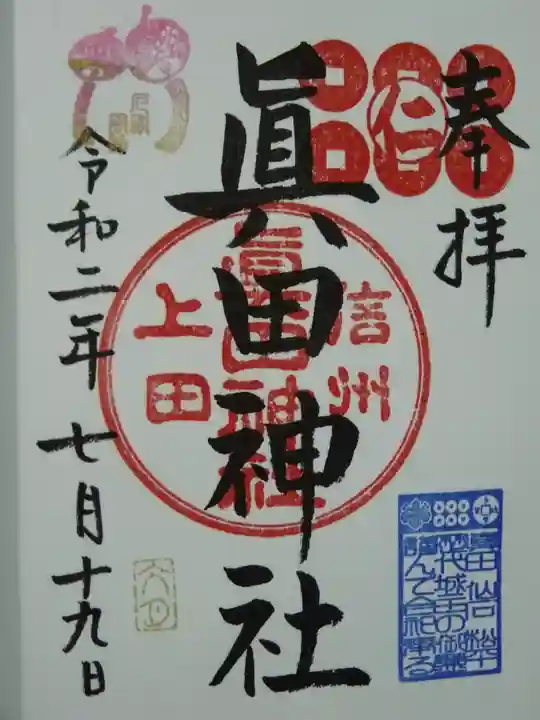 奉拝
仁
眞田神社
信州
眞田神社
上田
令和二年七月十九日
六月